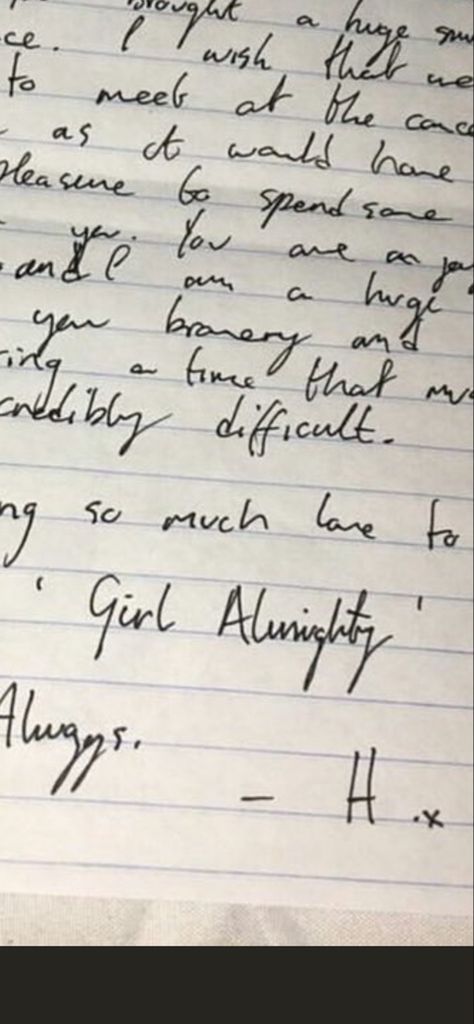 brought a huge
ce. I wish that we
to meet at the conc
as it would have
pleasure to spend some
you. You are an
and I am a huge
your bravery and
ring a time that mu
credibly difficult.
ng so much love to
'Girl Almighty'
Always.
- H.x